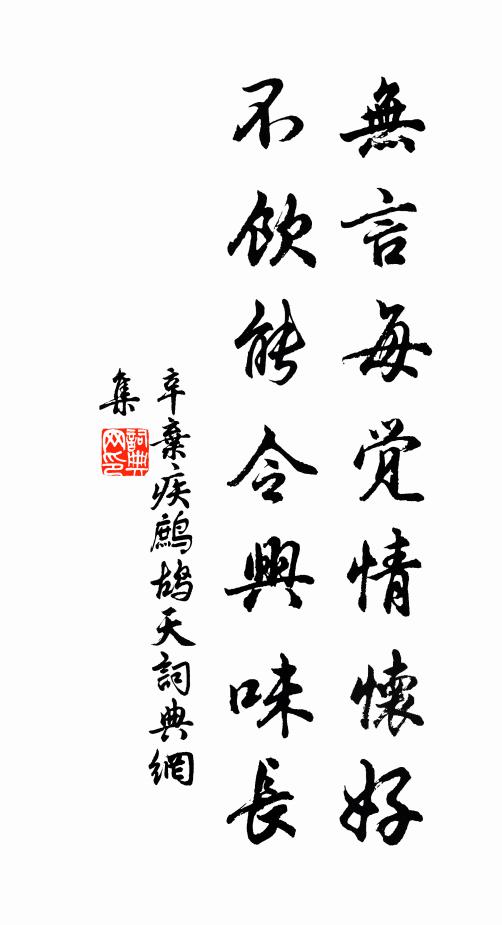 無言每覺情懷好
不飲能令興味長
辛棄疾鷓鴣天詞典網
集
詞典
网印